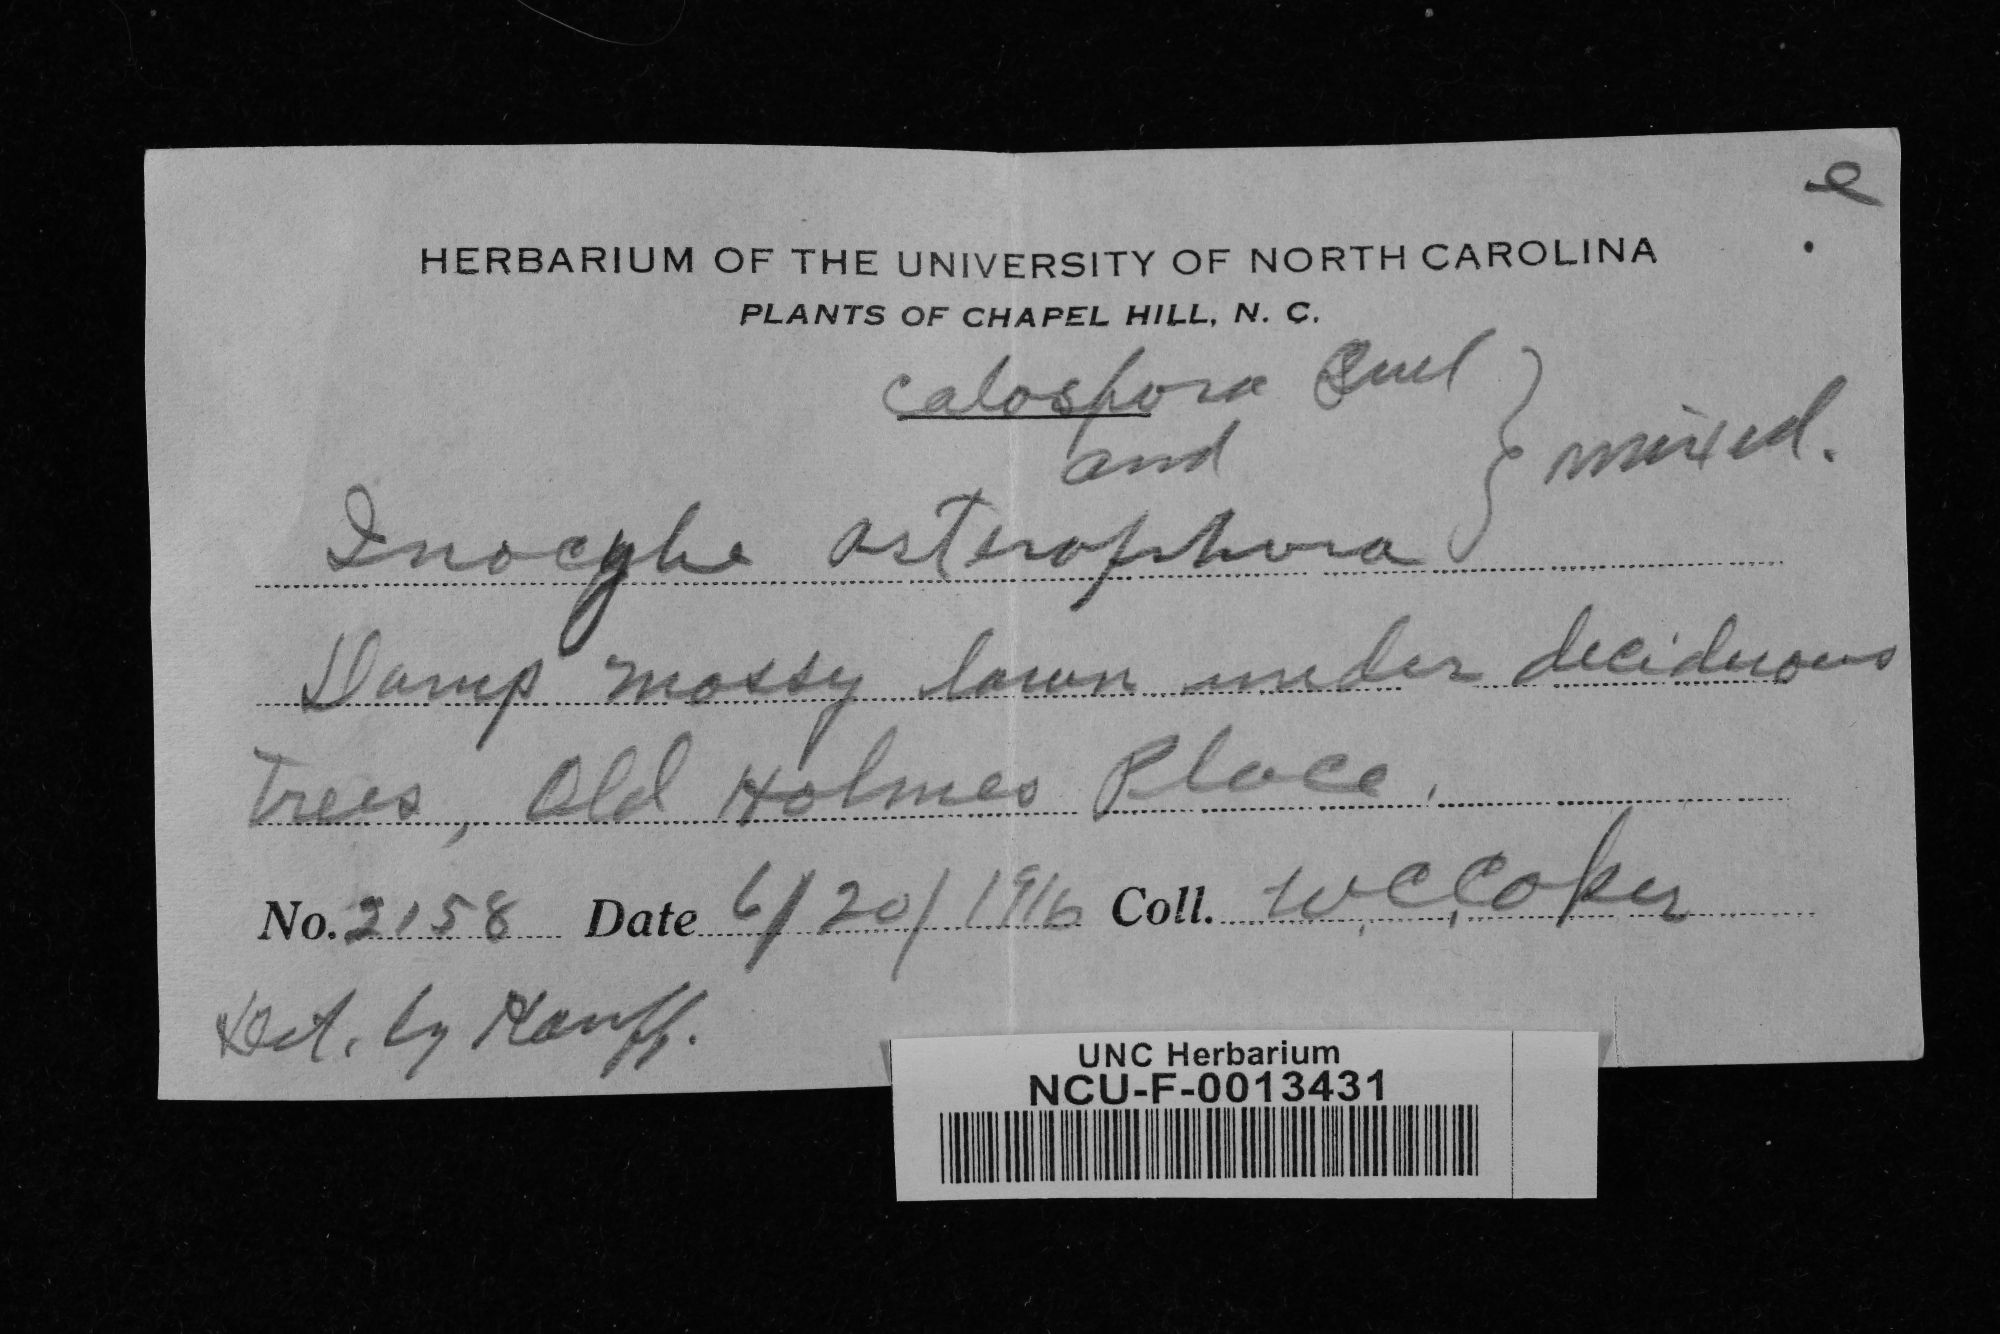 e
HERBARIUM OF THE UNIVERSITY OF NORTH CAROLINA
PLANTS OF CHAPEL HILL, N. C.
calospora Quel
and } mixed.
Inocybe asterophora
Damp mossy lawn under deciduous
trees, Old Holmes Place.
No. 2158 Date 6/20/1916 Coll. W.C.Coker
Det. by Kauff.
UNC Herbarium
NCU-F-0013431